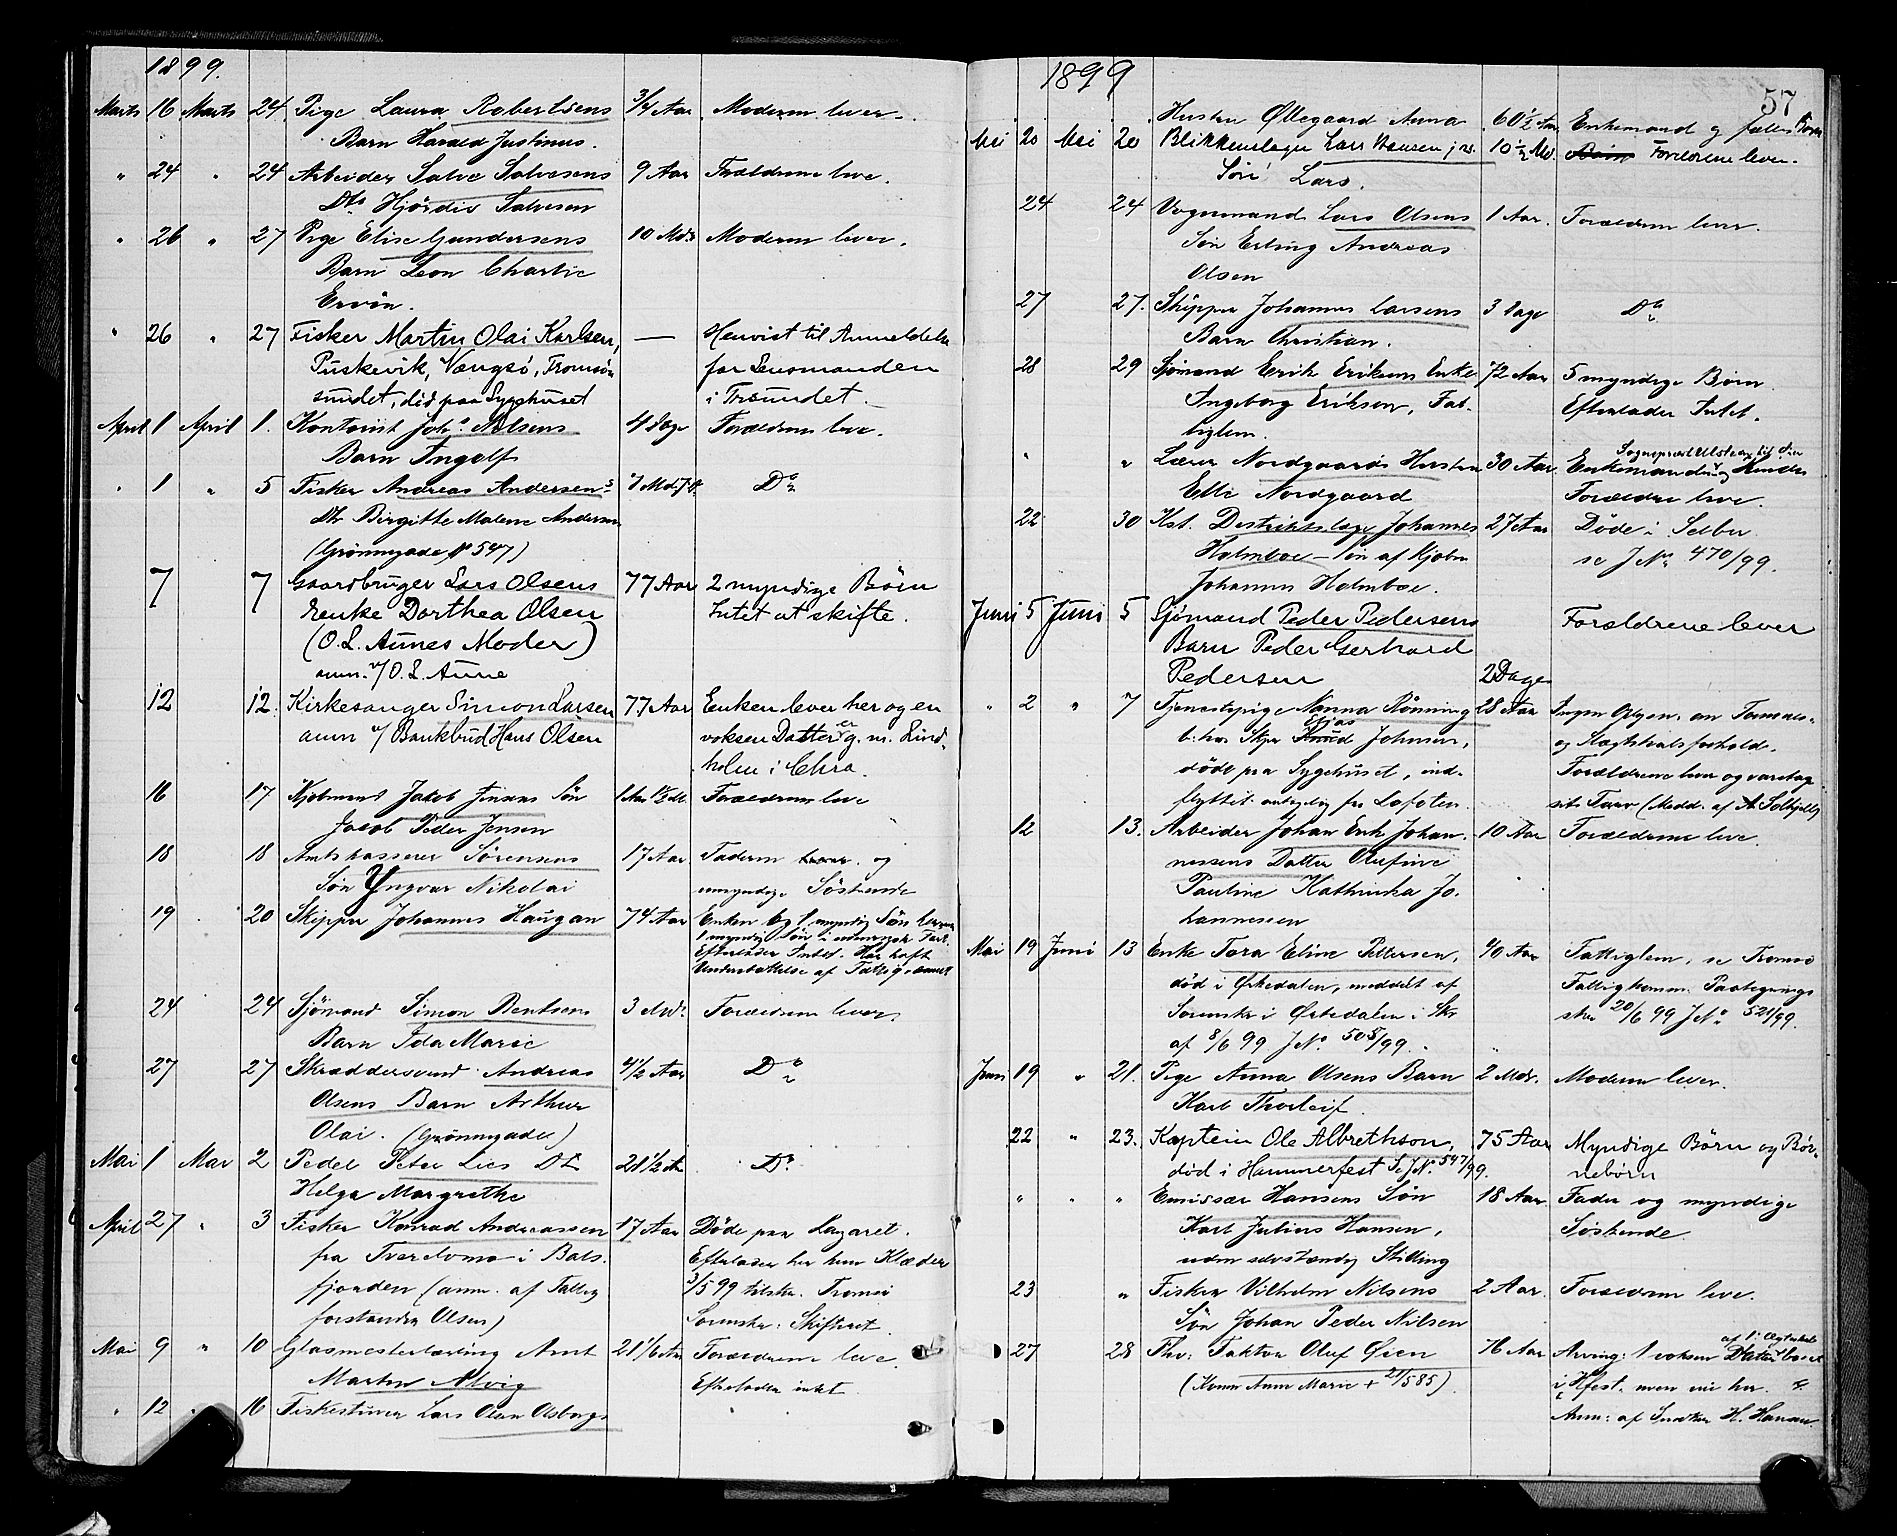 1899.
Marts 16 Marts 24 Pige Laura Robertsens 3/4 Aar Moderen lever.
Barn Harald Justinus.
" 24 " 24 Arbeider Salve Salvesens 9 Aar Forældrene leve.
Dtr Hjørdis Salvesen
" 26 " 27 Pige Elise Gundersens 10 Mdr Moderen lever.
Barn Leon Charlie
Ervin.
" 26 " 27 Fisker Martin Olai Karlsen, — Henvist til Anmeldelse
Puskevik, Vængsø, Tromsø-
sundet, død paa Sygehuset
for Lensmanden
i Trsundet.
April 1 April 1. Kontorist Johs Nilsens 4 Dage Forældrene leve.
Barn Ingolf
" 1 " 5 Fisker Andreas Andersens Do
Dtr Birgitte Malene Andersen
(Grønnegade No 547)
7 7 Gaardbruger Lars Olsens 77 Aar 2 myndige Børn
Enke Dorthea Olsen Intet at skifte.
(O. L. Aunes Moder)
anm. v/ O. L. Aune
12 12. Kirkesanger Simon Larsen 77 Aar Enken lever her og en
anm v/ Bankbud Hans Olsen voksen Datter er g. m. Lind-
holm i Chra.
16 17 Kjøbmand Jakob Jensens Søn Forældrene leve
Jacob Peder Jensen
18 18 Amtskasserer Sørensens 17 Aar Faderen lever og
Søn Yngvar Nikolai umyndige Søskende
19 20 Skipper Johannes Haugan 74 Aar Enken og 1 myndig Søn
1 myndig Søn i udenrigsk Fart.
Efterlader Intet. Har havt
Understøttelse af Fattigvæsenet
24 24 Sjømand Simon Bentsens 3 Mdr. Forældrene lever.
Barn Ida Marie
27 27 Skræddersvend Andreas 4 1/2 Aar Do
Olsens Barn Arthur
Olai. (Grønnegade)
Mai 1 Mai 2 Pedel Peter Lies Dtr 21 1/2 Aar Do
Helga Margrethe
April 27 " 3 Fisker Konrad Andreassen 17 Aar Døde paa Lazaret.
fra i Bals- Efterlader her kun Klæder
fjorden (anm. af Fattig- 3/5 99 tilskr. Tromsø
forstander Olsen) Sorenskr. Skifteret
Mai 9 " 10 Glasmesterlærling Arnt 21 1/6 Aar Forældrene leve.
Martin Alvig Efterlader intet
" 12 " 16 Lars Olsborgs
1899
57
Hustru Øllegaard Anna 60 1/2 Aar Enkemand og fælles Børn
Mai 20 Mai 20 Blikkenslager Lars Hansen jr. 10 1/2 Md. Børn Forældrene lever.
Søn Lars.
24 24 Vognmand Lars Olsens 1 Aar. Forældrene lever.
Søn Erling Andreas
Olsen
27 27. Skipper Johannes Larsens 3 Dage Do
Barn Christian.
28 29 Sjømand Erik Eriksens Enke 72 Aar 5 myndige Børn
Ingeborg Eriksen, Fat- Efterlader Intet.
tiglem.
" " Lærer Nordgaards Hustru 30 Aar. Enkemand og hendes
Elli Nordgaard Forældre leve.
22 30 Kst. Distriktslæge Johannes 27 Aar Døde i Selbu
Holmboe – Søn af Kjøbm se J No 470/99.
Johannes Holmboe.
Juni 5 Juni 5 Sjømand Peder Pedersens Forældrene lever
Barn Peder Gerhard
Pedersen 2 Dage
" 2 " 7 Tjenestepige Nanna Rønning 28 Aar
b. hos Skpr Elias Knud Johnsen, og Slægtskabsforholde.
døde paa Sygehuset, ind- Forældrene lever og varetog
flyttet antagelig fra Lofoten sit Tarv (Medd. af A. Solhjell)
12 13. Arbeider Johan Erik Johan- 10 Aar Forældrene leve.
nessens Datter Olufine
Pauline Kathrinka Jo-
hannessen
Mai 19 Juni 13 Enke Tora Eline Pettersen, 40 Aar Fattiglem, se Tromsø
død i Orkedalen, meddelt af Fattigkomm. Paategnings
Sorenskr i Orkedalen i Skr skr 20/6 99 J No 521/99.
af 8/6 99 J No. 505/99.
Juni 19 " 21. Pige Anna Olsens Barn 2 Mdr. Moderen lever.
Karl Thorleif.
22 " 23. Kaptein Ole Albrethson, 75 Aar Myndige Børn og Bør-
død i Hammerfest Se J No. 547/99. nebørn
" " " Emissær Hansens Søn 18 Aar Fader og myndige
Karl Julius Hansen, Søskende
uden selvstændig Stilling
23 " Fisker Vilhelm Nilsens 2 Aar. Forældrene leve.
Søn Johan Peder Nilsen
27 28 Fhv. Faktor Oluf Øien 76 Aar Arving: 1 voksen Datter bosat
(Konen Anne Marie + 21/5 85). i Hfest. men nu her.
Anm: af Snedker H. Hansen.